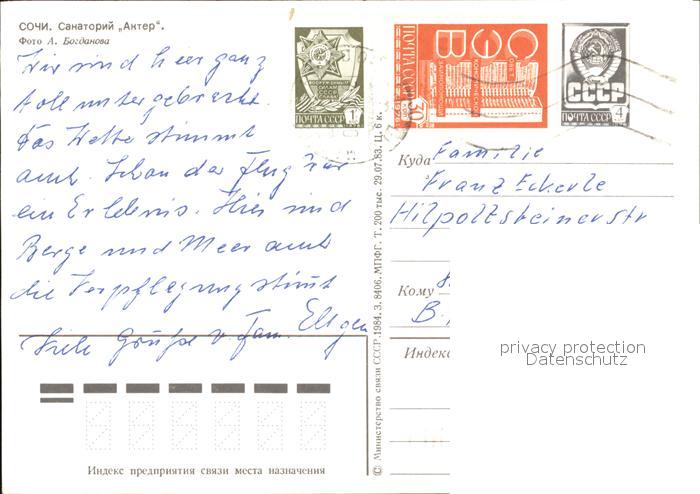 СОЧИ. Санаторий „Актер".
Фото А. Богданова
Wir sind hier ganz
toll untergebracht.
Das Wetter stimmt
auch. Schon der Flug war
ein Erlebnis. Hier sind
Berge und Meer auch
die Verpflegung stimmt
Viele Grüße v. Fam.
ВООРУЖЕННЫМ СИЛАМ СССР
1
ПОЧТА СССР
СЭВ
СОВЕТ ЭКОНОМИЧЕСКОЙ ВЗАИМОПОМОЩИ
ПОЧТА СССР
30
СССР
ПОЧТА СССР 4
Куда Familie
Franz Eckerle
Hilpoltsteinerstr
Кому 8
B.
Индекс
privacy protection
Datenschutz
© Министерство связи СССР. 1984. З. 8406. МПФГ. Т. 200 тыс. 29.07.83. Ц. 6 к.
Индекс предприятия связи места назначения